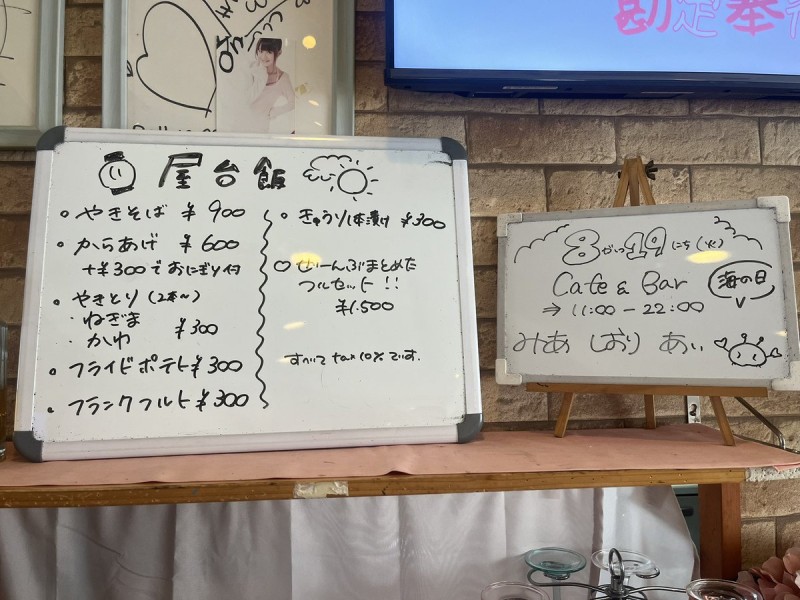 勘定奉行
屋台飯
・やきそば ¥900
・からあげ ¥600
+¥300でおにぎり付
・やきとり(2本〜)
・ねぎま
・かわ
¥300
・フライドポテト¥300
・フランクフルト¥300
・きゅうり1本漬け ¥300
○ぜーんぶまとめた
フルセット!!
¥1.500
すべて tax10%です.
8がつ19にち(火)
Cafe & Bar
海の日
⇒ 11:00-22:00
みあ しおり あい